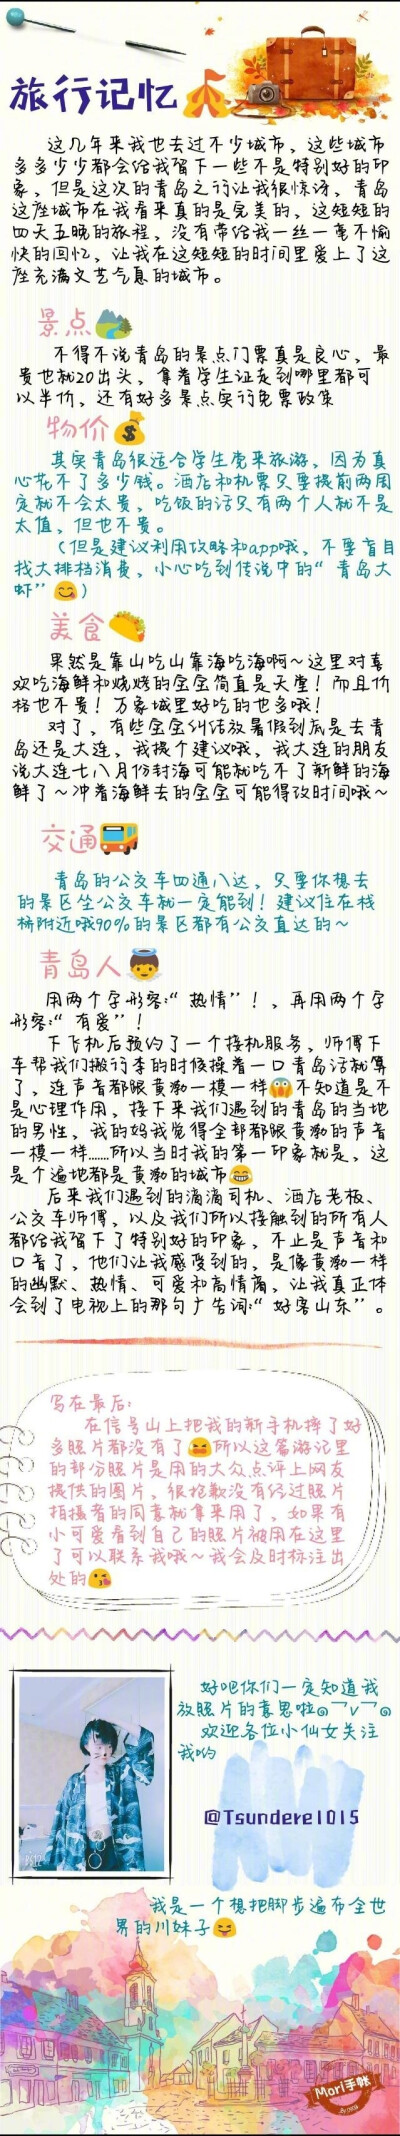 旅行记忆
这几年来我也去过不少城市，这些城市
多多少少都会给我留下一些不是特别好的印
象，但是这次的青岛之行让我很惊讶，青岛
这座城市在我看来真的是完美的，这短短的
四天五晚的旅程，没有带给我一丝一毫不愉
快的回忆，让我在这短短的时间里爱上了这
座充满文艺气息的城市。
景点
不得不说青岛的景点门票真是良心，最
贵也就20出头，拿着学生证走到哪里都可
以半价，还有好多景点实行免票政策
物价
其实青岛很适合学生党来旅游，因为真
心花不了多少钱。酒店和机票只要提前两周
定就不会太贵，吃饭的话只有两个人就不是
太值，但也不贵。
（但是建议利用攻略和app哦，不要盲目
找大排档消费，小心吃到传说中的“青岛大
虾”😋）
美食
果然是靠山吃山靠海吃海啊～这里对喜
欢吃海鲜和烧烤的金金简直是天堂！而且价
格也不贵！万象城里好吃的也多哦！
对了，有些金金纠结放暑假到底是去青
岛还是大连，我提个建议哦，我大连的朋友
说大连七八月份封海可能就吃不了新鲜的海
鲜了～冲着海鲜去的金金可能得改时间哦～
交通
青岛的公交车四通八达，只要你想去
的景区坐公交车就一定能到！建议住在栈
桥附近哦90%的景区都有公交直达的～
青岛人
用两个字形容:“热情”！，再用两个字
形容:“有爱”！
下飞机后预约了一个接机服务，师傅下
车帮我们搬行李的时候操着一口青岛话就算
了，连声音都跟黄渤一模一样😱不知道是不
是心理作用，接下来我们遇到的青岛的当地
的男性，我的妈我觉得全部都跟黄渤的声音
一模一样……所以当时我的第一印象就是，这
是个遍地都是黄渤的城市😂
后来我们遇到的滴滴司机、酒店老板、
公交车师傅，以及我们所以接触到的所有人
都给我留下了特别好的印象，不止是声音和
口音了，他们让我感受到的，是像黄渤一样
的幽默、热情、可爱和高情商，让我真正体
会到了电视上的那句广告词:“好客山东”。
写在最后:
在信号山上把我的新手机摔了好
多照片都没有了😫所以这篇游记里
的部分照片是用的大众点评上网友
提供的图片，很抱歉没有经过照片
拍摄者的同意就拿来用了，如果有
小可爱看到自己的照片被用在这里
了可以联系我哦～我会及时标注出
处的😘
好吧你们一定知道我
放照片的意思啦๑¯∀¯๑
欢迎各位小仙女关注
我哟
@Tsundere1015
我是一个想把脚步遍布全世
界的川妹子😝
Mori手帐